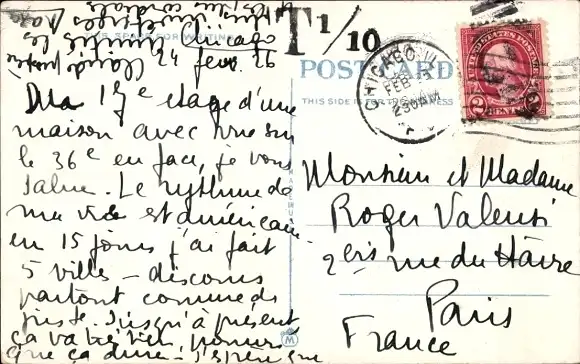 Chicago
24 fevr. 26
Du 17e etage d'une
maison avec vue sur
le 36e en face, je vous
salue. Le rythme de
ma vie est américain
en 15 jours j'ai fait
5 villes - discours
partout comme de
juste. Jusqu'à présent
ça va très bien, pourvu
que ça dure. J'espère que
les
cordiales
T 1/10
THIS SPACE FOR WRITING
POST CARD
THIS SIDE IS FOR THE ADDRESS
CHICAGO, ILL
FEB
230AM
UNITED STATES POSTAGE
2 CENTS 2
Monsieur et Madame
Roger Valensi
2 bis rue du Havre
Paris
France